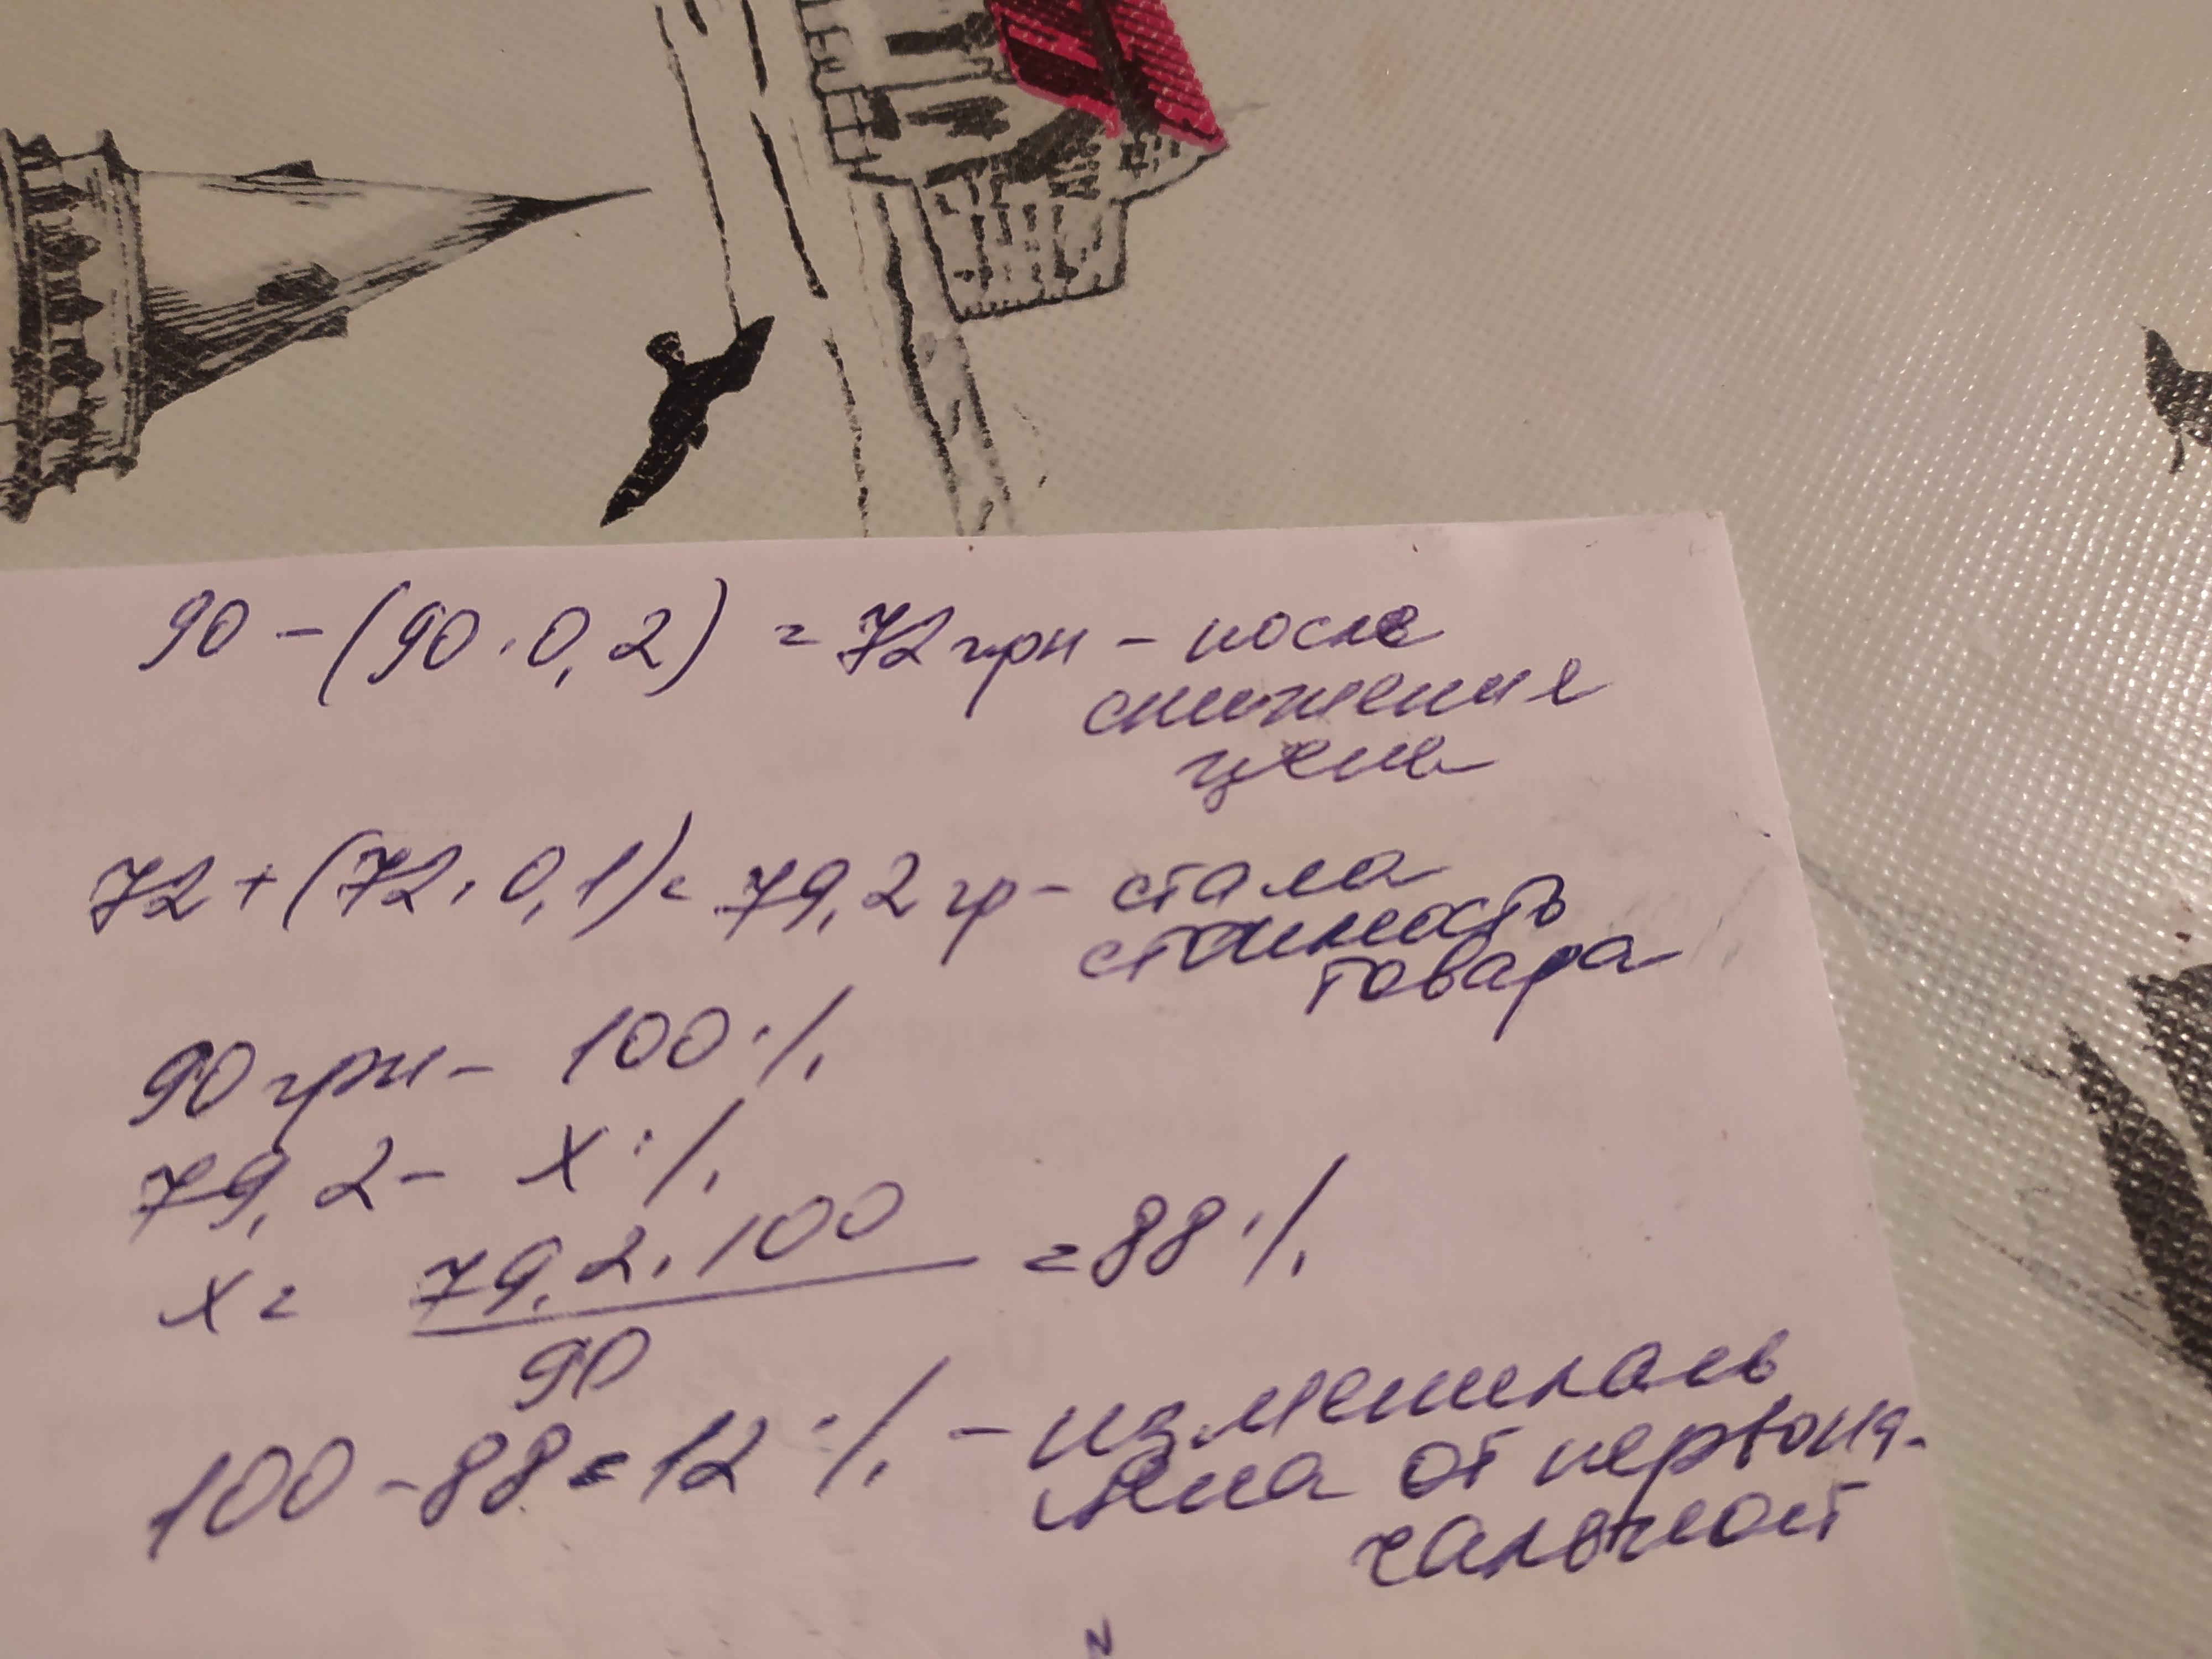 90 - (90 · 0,2) = 72 грн - после
снижения
цены
72 + (72 · 0,1) = 79,2 гр - стала
стоимость
товара
90 грн - 100 %
79,2 - x %
x = 79,2 · 100 = 88 %
90
100 - 88 = 12 % - изменилась
цена от первона-
чальной